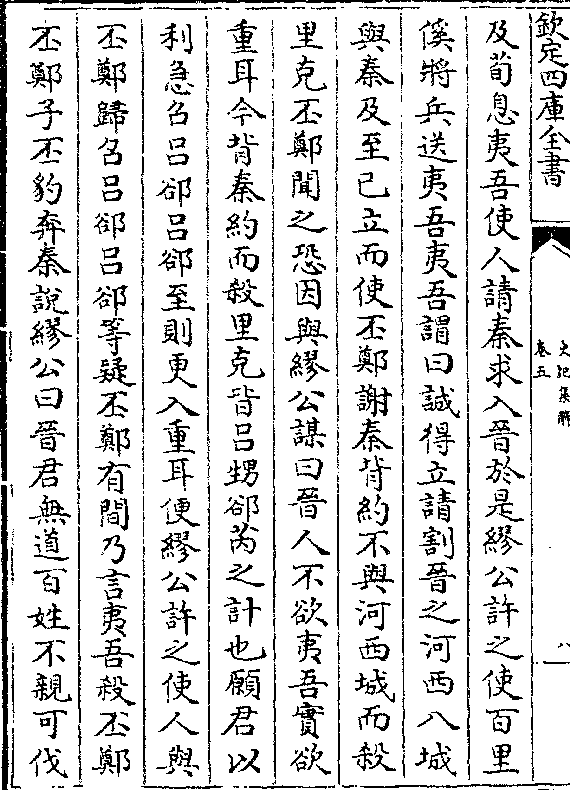 欽定四庫全書
史記集解
卷五
八
及荀息夷吾使人請秦求入晉於是繆公許之使百里
傒將兵送夷吾夷吾謂曰誠得立請割晉之河西八城
與秦及至已立而使丕鄭謝秦背約不與河西城而殺
里克丕鄭聞之恐因與繆公謀曰晉人不欲夷吾實欲
重耳今背秦約而殺里克皆呂甥郤芮之計也願君以
利急召呂郤呂郤至則更入重耳便繆公許之使人與
丕鄭歸召呂郤呂郤等疑丕鄭有間乃言夷吾殺丕鄭
丕鄭子丕豹奔秦說繆公曰晉君無道百姓不親可伐